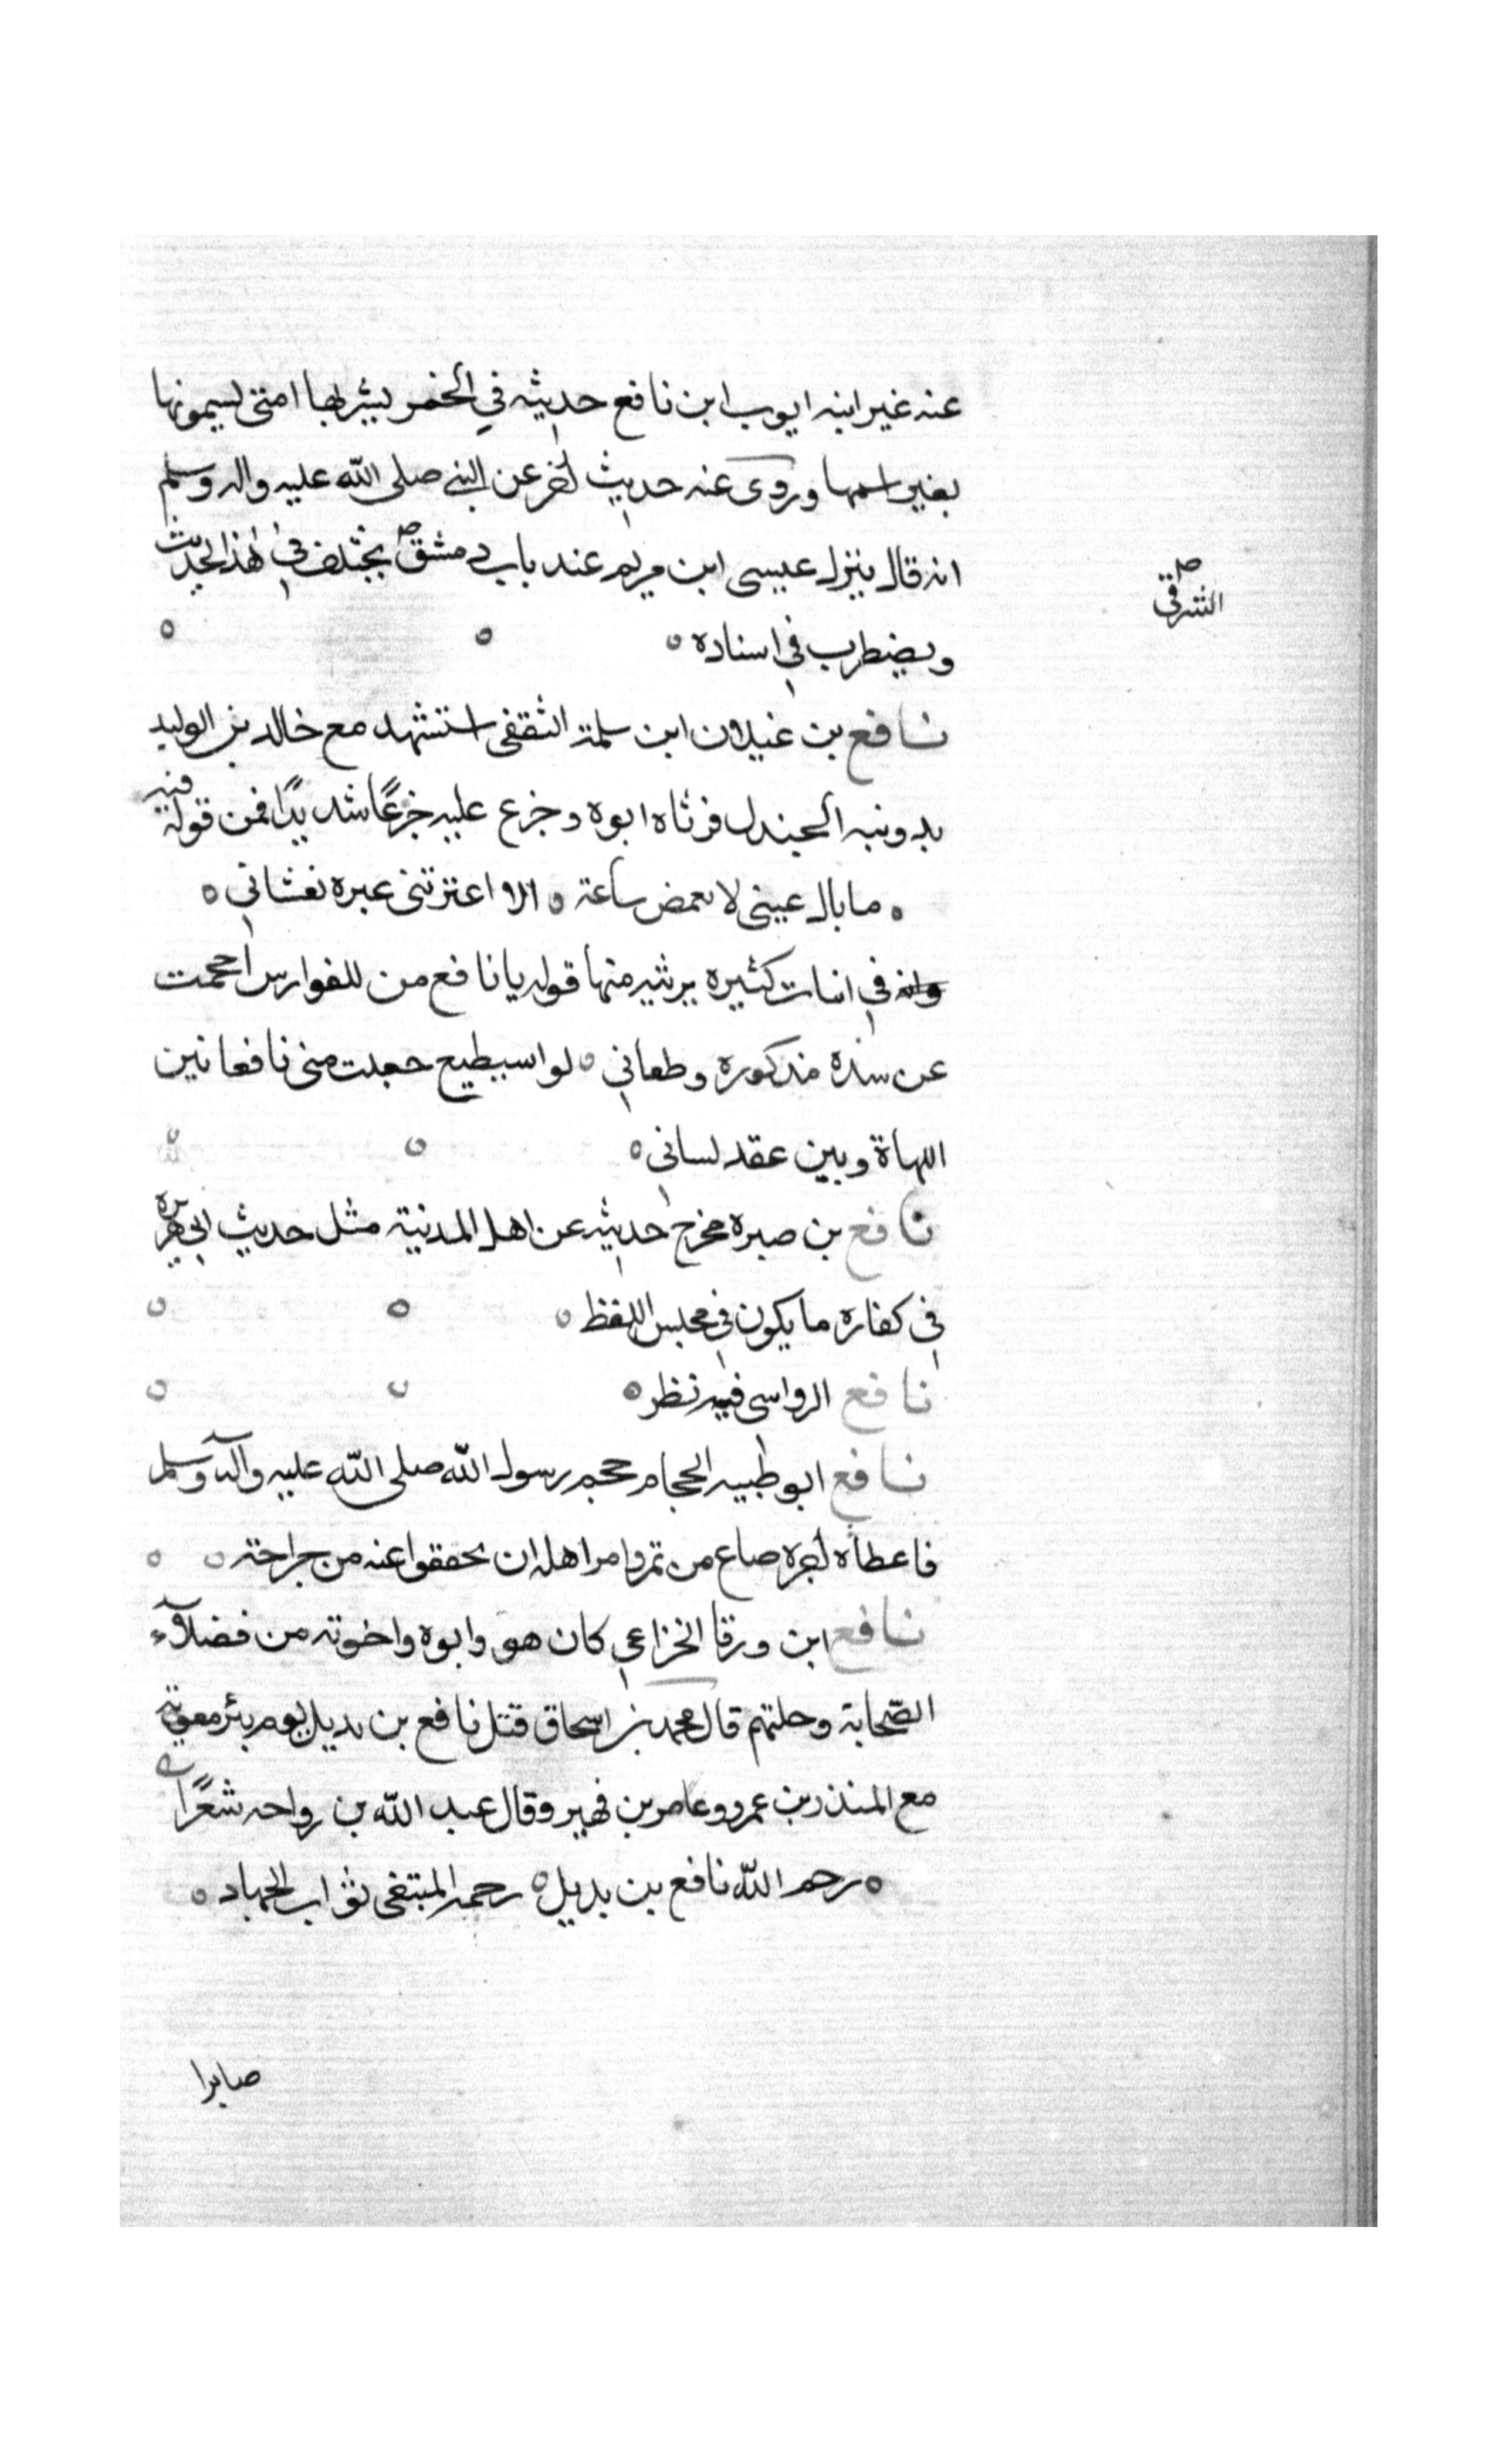 عنه غير ابنه ايوب ابن نافع حديثه في الخمر يشربها امتي يسمونها
بغير اسمها وروى عنه حديث اخر عن النبي صلى الله عليه واله وسلم
انه قال ينزل عيسى ابن مريم عند باب دمشق يختلف في هذا الحديث
الشرقي
ويضطرب في اسناده
نافع بن غيلان ابن سلمة الثقفي استشهد مع خالد بن الوليد
بدومة الجندل فرثاه ابوه وجزع عليه جزعًا شديدًا فمن قوله فيه
ما بال عيني لا تغمض ساعة الا اعترتني عبره تغشاني
في ابيات كثيره يرثيه منها قوله يا نافع من للفوارس احجمت
عن شده مذكوره وطعاني لو استطيع جعلت مني نافعا بين
اللهاة وبين عقد لساني
نافع بن صبره مخرج حديثه عن اهل المدنية مثل حديث ابي هريره
في كفاره ما يكون في مجلس اللغظ
نافع الرواسي فيه نظر
نافع ابو طيبه الحجام حجم رسول الله صلى الله عليه وآله وسلم
فاعطاه اجره صاع من تمر وامر اهله ان يخففوا عنه من جراحته
نافع ابن ورقا الخزاعي كان هو وابوه واخوته من فضلآء
الصّحابة وجلتهم قال محمد بن اسحاق قتل نافع بن بديل يوم بئر معونة
مع المنذر بن عمرو وعامر بن فهير وقال عبد الله بن رواحه شعرًا
رحم الله نافع بن بديل رحمة المبتغي ثواب الجهاد
صابرا